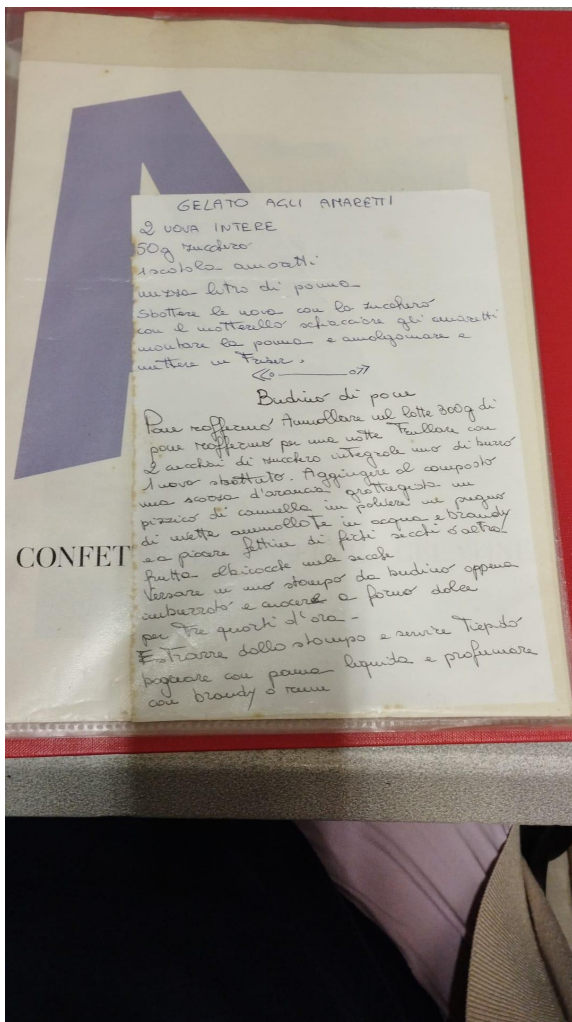 GELATO AGLI AMARETTI
2 UOVA INTERE
50g zucchero
1 scatola amaretti
mezzo litro di panna
sbattere le uova con lo zucchero
con il mattarello schiacciare gli amaretti
montare la panna e amalgamare e
mettere in Friser.
Budino di pane
Pane raffermo Ammollare nel latte 300g di
pane raffermo per una notte Frullare con
2 cucchiai di zucchero integrale uno di burro
1 uovo sbattuto. Aggiungere al composto
una scorza d'arancia grattugiata un
pizzico di cannella in polvere un pugno
di uvette ammollate in acqua e brandy
e a piacere fettine di fichi secchi o altra
frutta albicocche mele secche
Versare in uno stampo da budino appena
imburrato e cuocere a forno dolce
per tre quarti d'ora -
Estrarre dallo stampo e servire Tiepido
bagnare con panna liquida e profumare
con brandy o rum
CONFET